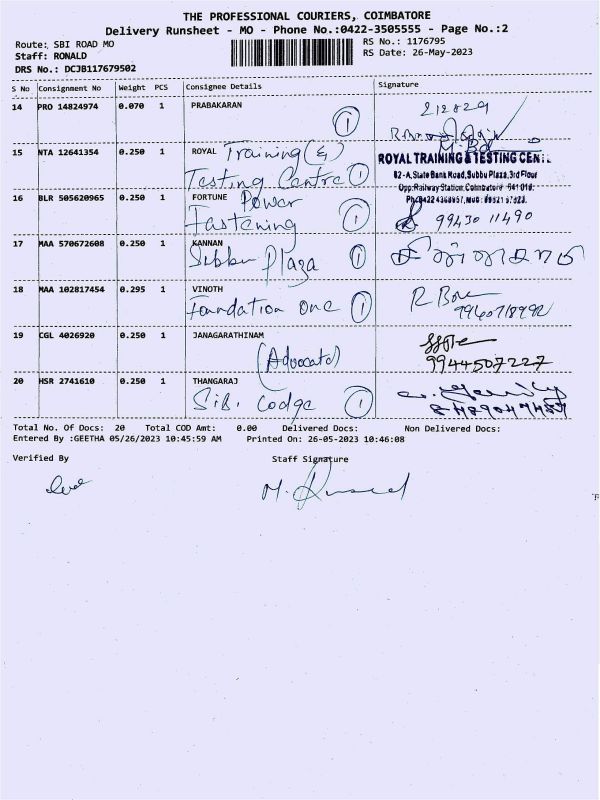 THE PROFESSIONAL COURIERS, COIMBATORE
Delivery Runsheet - MO - Phone No.:0422-3505555 - Page No.:2
Route: SBI ROAD MO RS No.: 1176795
Staff: RONALD RS Date: 26-May-2023
DRS No.: DCJB117679502
S No Consignment No Weight PCS Consignee Details Signature
14 PRO 14824974 0.070 1 PRABAKARAN 212829
1
15 NTA 12641354 0.250 1 ROYAL Training (&) ROYAL TRAINING & TESTING CENTRE
Testing Centre 1 82-A, State Bank Road, Subbu Plaza, 3rd Floor
Opp: Railway Station, Coimbatore 641 018.
16 BLR 505620965 0.250 1 FORTUNE Power
Fastening 1 99430 11490
17 MAA 570672608 0.250 1 KANNAN
Subbu Plaza 1
18 MAA 102817454 0.295 1 VINOTH
Foundation one 1
19 CGL 4026920 0.250 1 JANAGARATHINAM
(Advocate) 9944507227
20 HSR 2741610 0.250 1 THANGARAJ
Lodge 1
Total No. Of Docs: 20 Total COD Amt: 0.00 Delivered Docs: Non Delivered Docs:
Entered By :GEETHA 05/26/2023 10:45:59 AM Printed On: 26-05-2023 10:46:08
Verified By Staff Signature